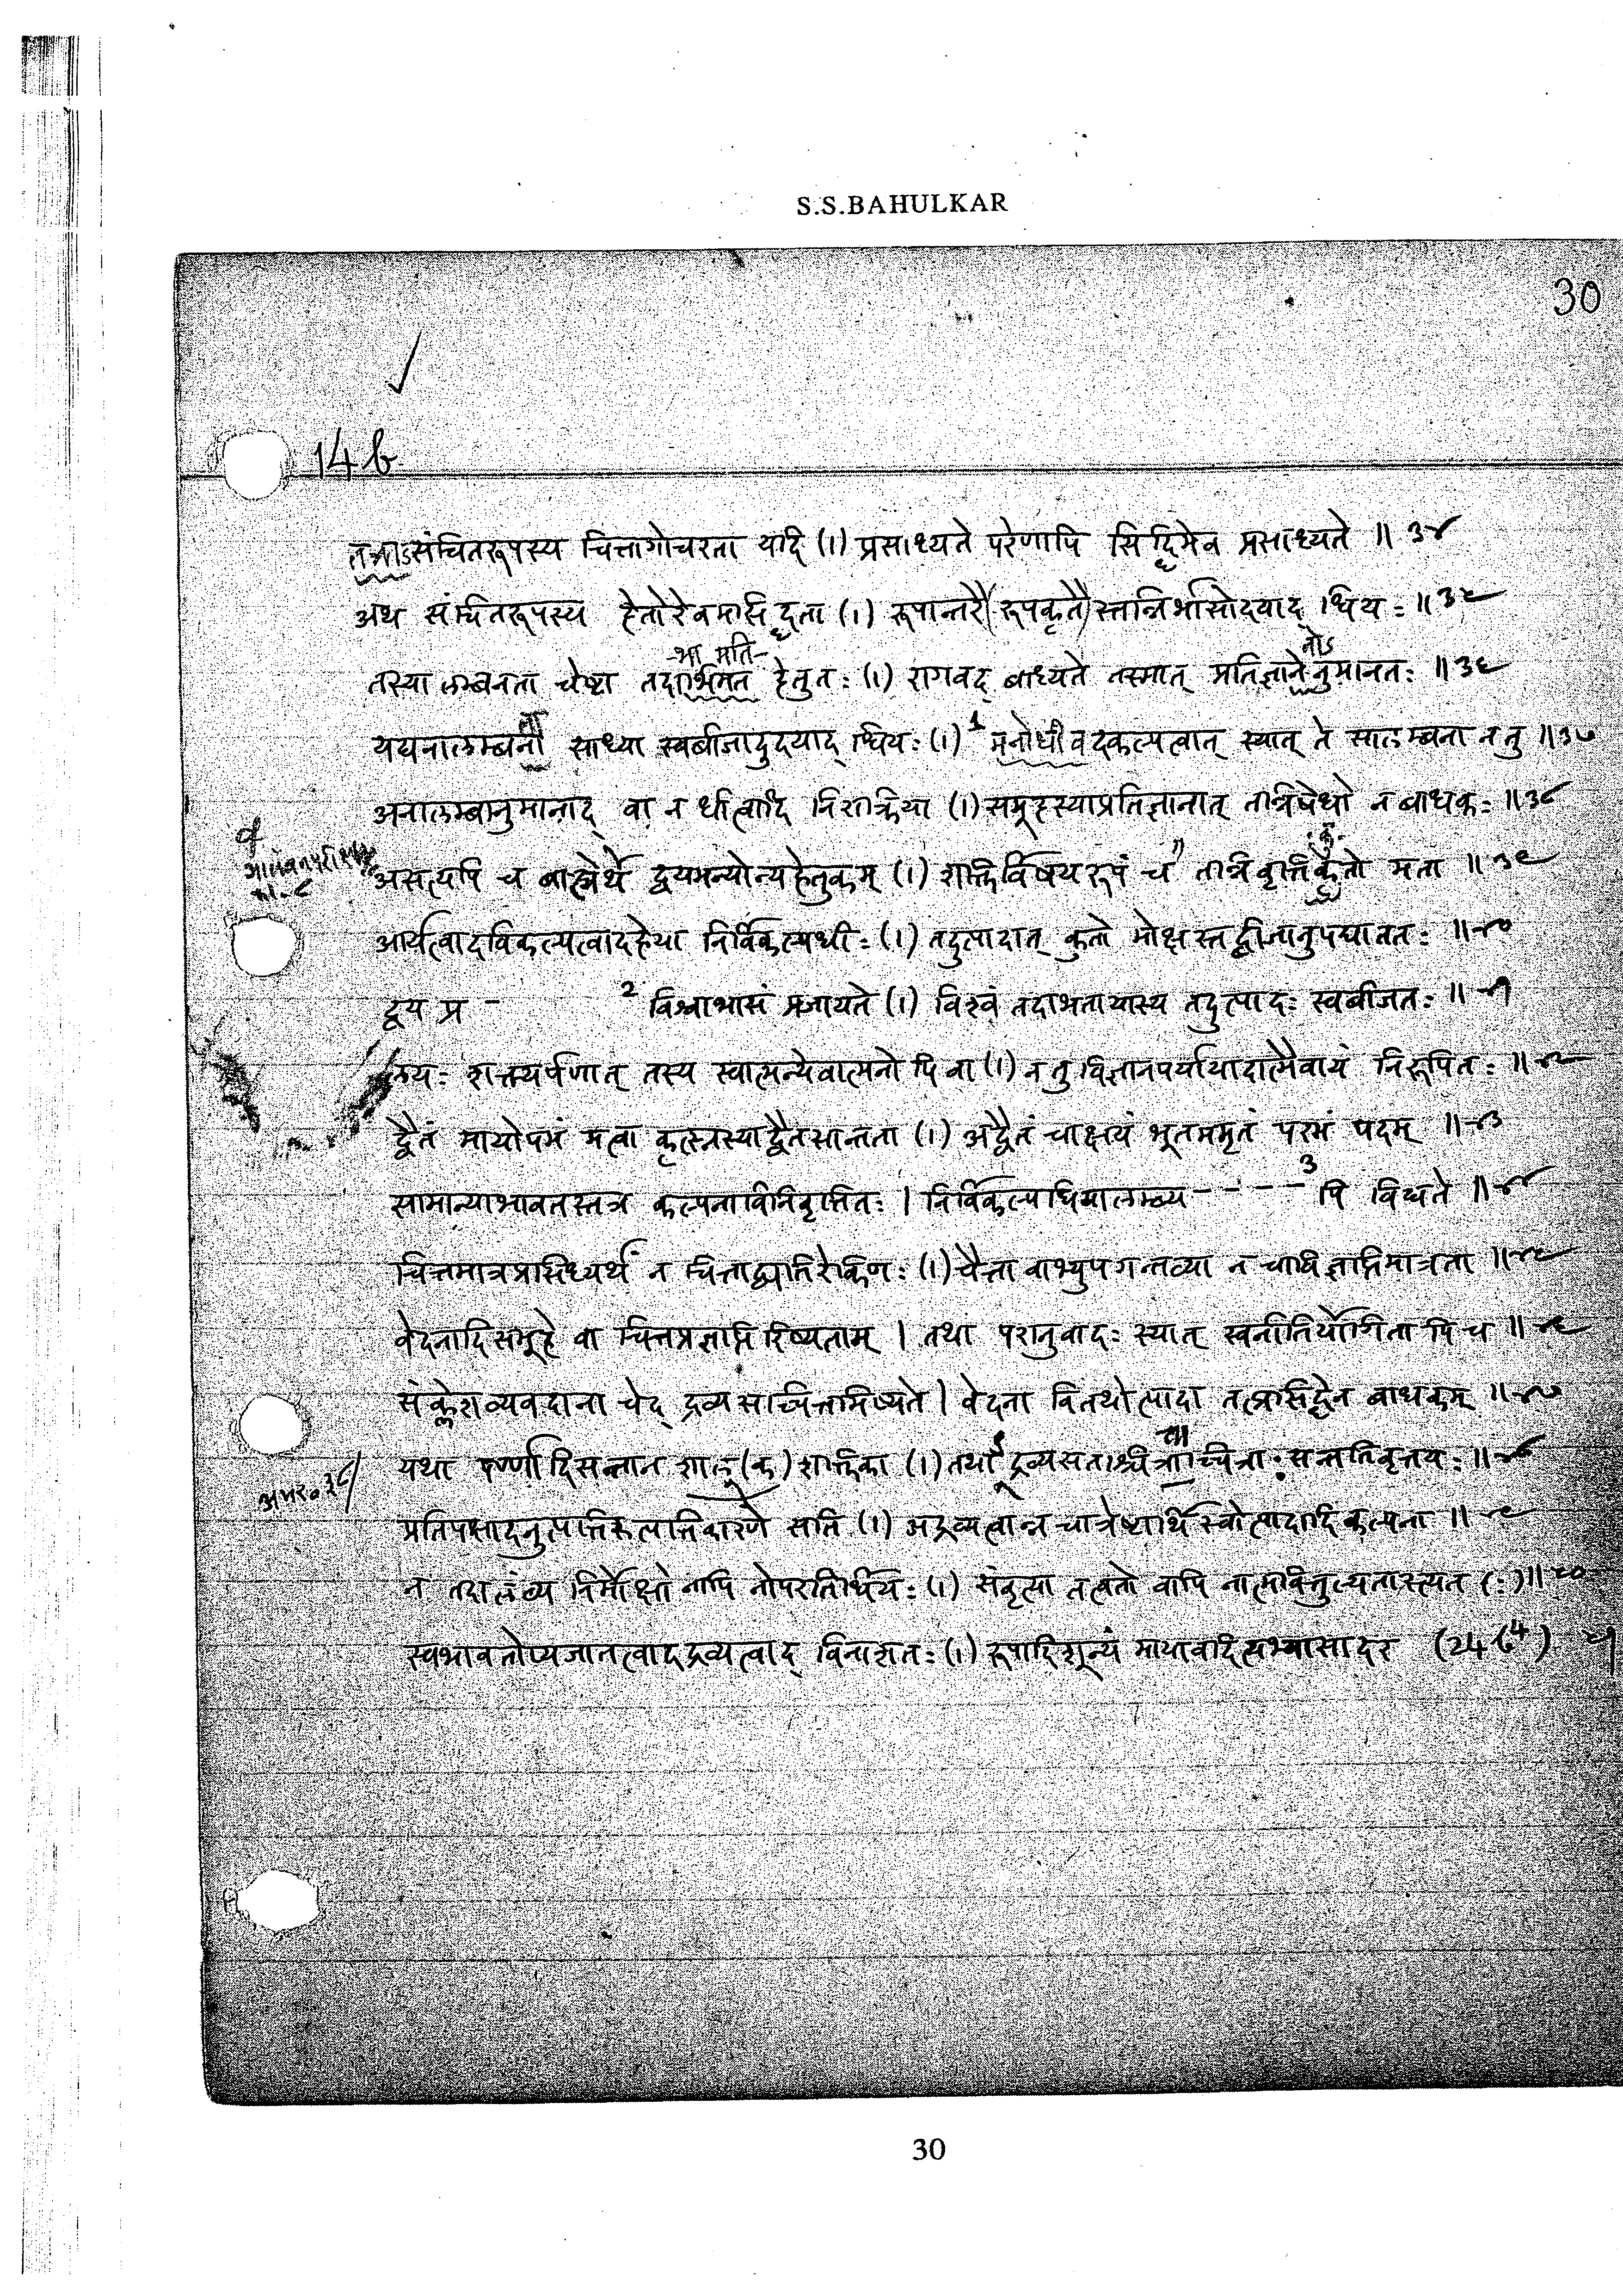 S.S.BAHULKAR
30
14 b
तत्राऽसंचितरूपस्य चित्तागोचरता यदि (।) प्रसाध्यते परेणापि सिद्धिमेव प्रसाध्यते ॥ ३४
अथ संचितरूपस्य हेतोरेवमसिद्धता (।) रूपान्तरै(रूपकृतै)स्तन्निर्भासोदयाद् धियः ॥ ३५
-भा मति-
नोऽ
तस्यालम्बनता चेष्टा तदाभिमत हेतुतः (।) रागवद् बाध्यते तस्मात् प्रतिज्ञानेनुमानतः ॥ ३६
यद्यनालम्बना साध्या स्वबीजादुदयाद् धियः (।) 1 मनोधीवदकल्पत्वात् स्यात् ते सालम्बना न तु ॥ ३७
अनालम्बानुमानाद् वा न धीत्वादि निराक्रिया (।) समूहस्याप्रतिज्ञानात् तन्निषेधो न बाधकः ॥ ३८
असत्यपि च बाह्येर्थे द्वयमन्योन्यहेतुकम् (।) शक्तिर्विषयरूपं च तन्निवृत्तिः कुतो मता ॥ ३९
आर्यत्वादविकल्पत्वादहेया निर्विकल्पधीः (।) तदुत्पादात् कुतो मोक्षस्तद्बीजानुपघाततः ॥ ४०
द्वय प्र - 2 विश्वाभासं प्रजायते (।) विश्वं तदाभतायास्य तदुत्पादः स्वबीजतः ॥ ४१
लयः शक्त्यर्पणात् तस्य स्वात्मन्येवात्मनोपि वा (।) न तु विज्ञानपर्यायादात्मैवायं निरूपितः ॥ ४२
द्वैतं मायोपमं मत्वा कृत्स्नस्याद्वैतसान्तता (।) अद्वैतं चाक्षयं भूतममृतं परमं पदम् ॥ ४३
सामान्याभावतस्तत्र कल्पनाविनिवृत्तितः । निर्विकल्पधियालम्ब्य - - - - 3 पि विद्यते ॥ ४४
चित्तमात्रप्रसिध्यर्थं न चित्ताद्व्यतिरेकिणः (।) चैत्ता वाभ्युपगन्तव्या न चापि ज्ञप्तिमात्रता ॥ ४५
वेदनादिसमूहे वा चित्तप्रज्ञप्तिरिष्यताम् । तथा परानुवादः स्यात् स्वनीतिर्योगितापि च ॥ ४६
संक्लेशव्यवदाना चेद् द्रव्यसच्चित्तमिष्यते । वेदना वितथोत्पादा तत्प्रसिद्धेन बाधकम् ॥ ४७
अमर० ३८
प्रतिपक्षादनुत्पत्तिरुत्पत्तिकारणे सति (।) अद्रव्यत्वान्न चात्रेष्टार्थि स्वोत्पादादि कल्पना ॥ ४९
न तदालंब्य निर्मोक्षो नापि नोपरतिर्धियः (।) संवृत्या तत्वतो वापि
स्वभावतोप्यजातत्वादद्रव्यत्वाद् विनाशतः (।) रूपादिशून्यं मायावदित्यभ्यासादर (24 4) ५१
30